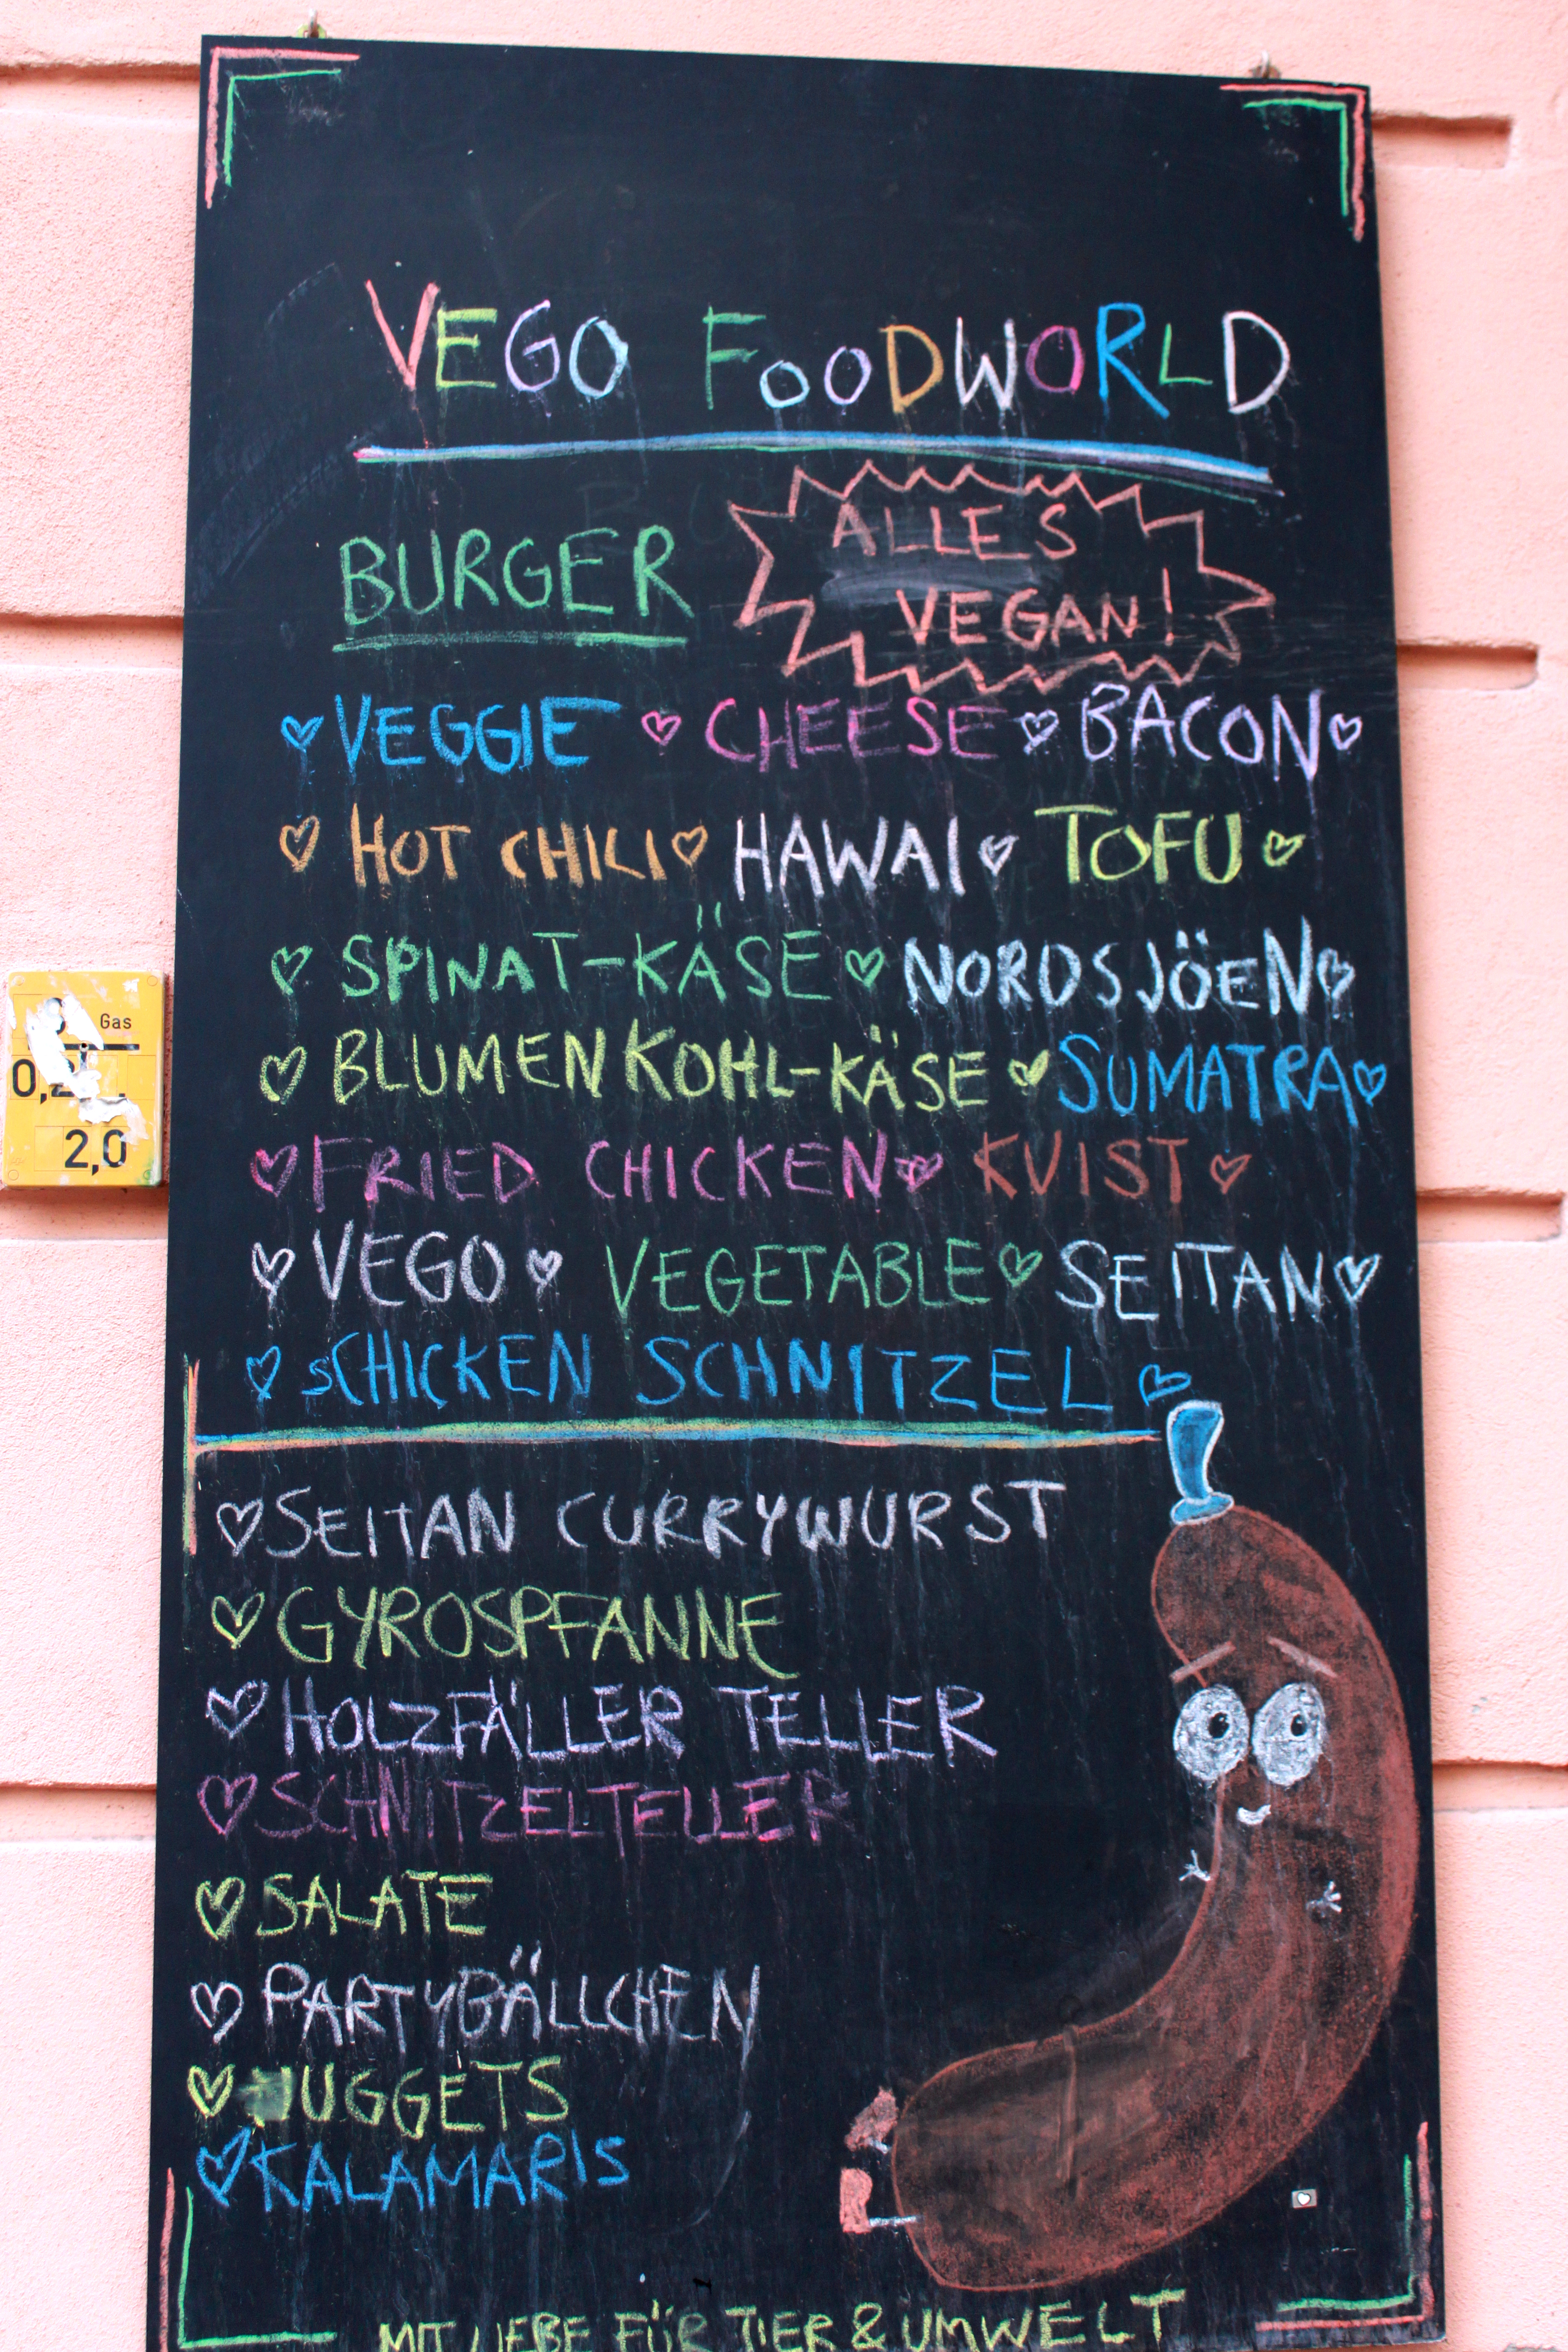 VEGO FOODWORLD
BURGER
ALLES
VEGAN!
♡ VEGGIE ♡ CHEESE ♡ BACON ♡
♡ HOT CHILI ♡ HAWAI ♡ TOFU ♡
♡ SPINAT-KÄSE ♡ NORDSJÖEN ♡
♡ BLUMENKOHL-KÄSE ♡ SUMATRA ♡
♡ FRIED CHICKEN ♡ KVIST ♡
♡ VEGO ♡ VEGETABLE ♡ SEITAN ♡
♡ sCHICKEN SCHNITZEL ♡
♡ SEITAN CURRYWURST
♡ GYROSPFANNE
♡ HOLZFÄLLER TELLER
♡ SCHNITZELTELLER
♡ SALATE
♡ PARTYBÄLLCHEN
♡ NUGGETS
♡ KALAMARIS
MIT LIEBE FÜR TIER & UMWELT
Gas
2,0